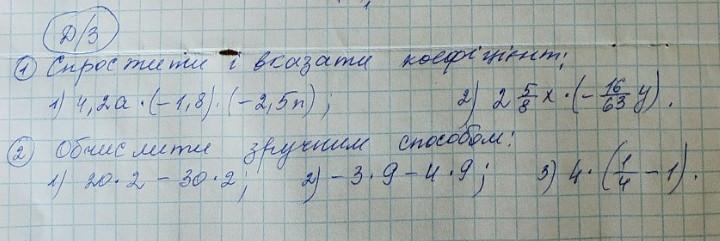 Д/З
① Спростити і вказати коефіцієнт:
1) 4,2a·(-1,8)·(-2,5n); 2) 2 5/8 x·(-16/63 y).
② Обчислити зручним способом:
1) 20·2-30·2; 2) -3·9-4·9; 3) 4·(1/4-1).